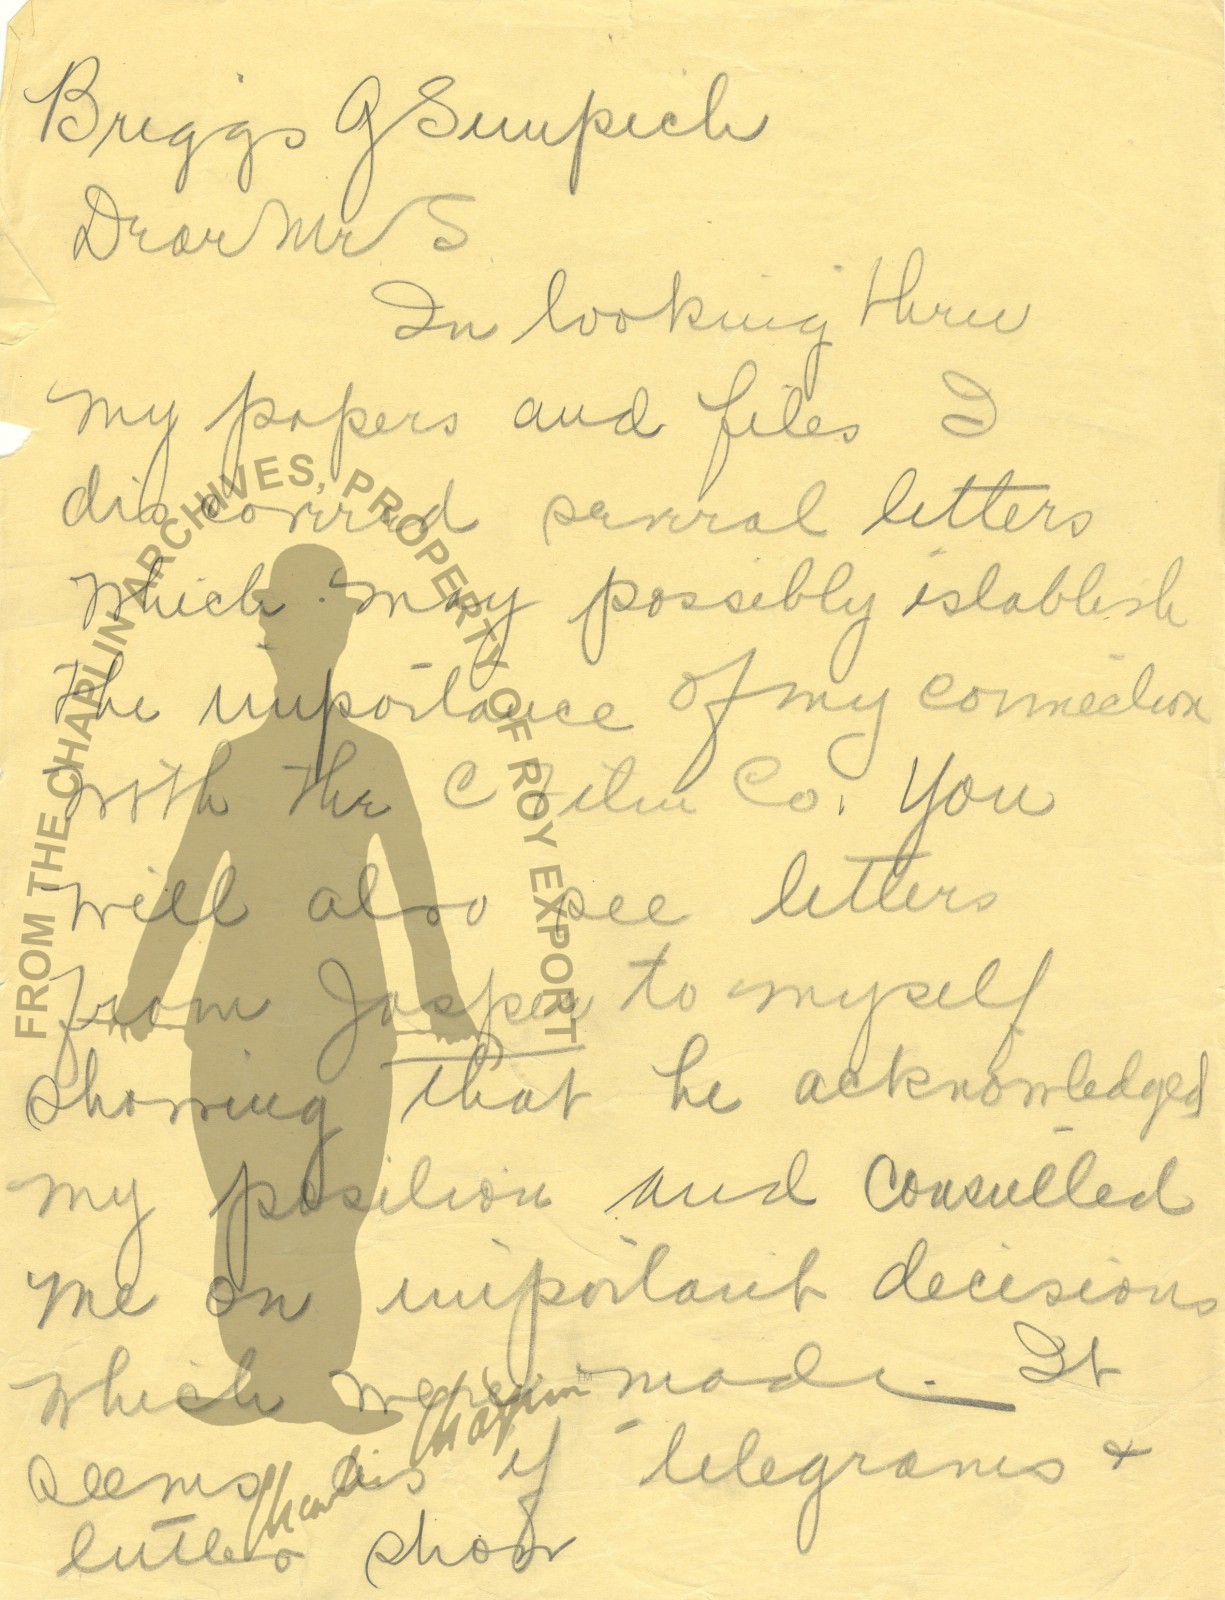 Briggs G Sumpich
Dear Mr S
In looking threu
my papers and files I
discovered several letters
which may possibly establish
the importance of my connection
with the C Film Co. You
will also see letters
from Jasper to myself
showing that he acknowledged
my position and consulted
me on important decisions
which were made. It
seems as if telegrams +
letters show
FROM THE CHAPLIN ARCHIVES, PROPERTY OF ROY EXPORT
Charlie Chaplin TM